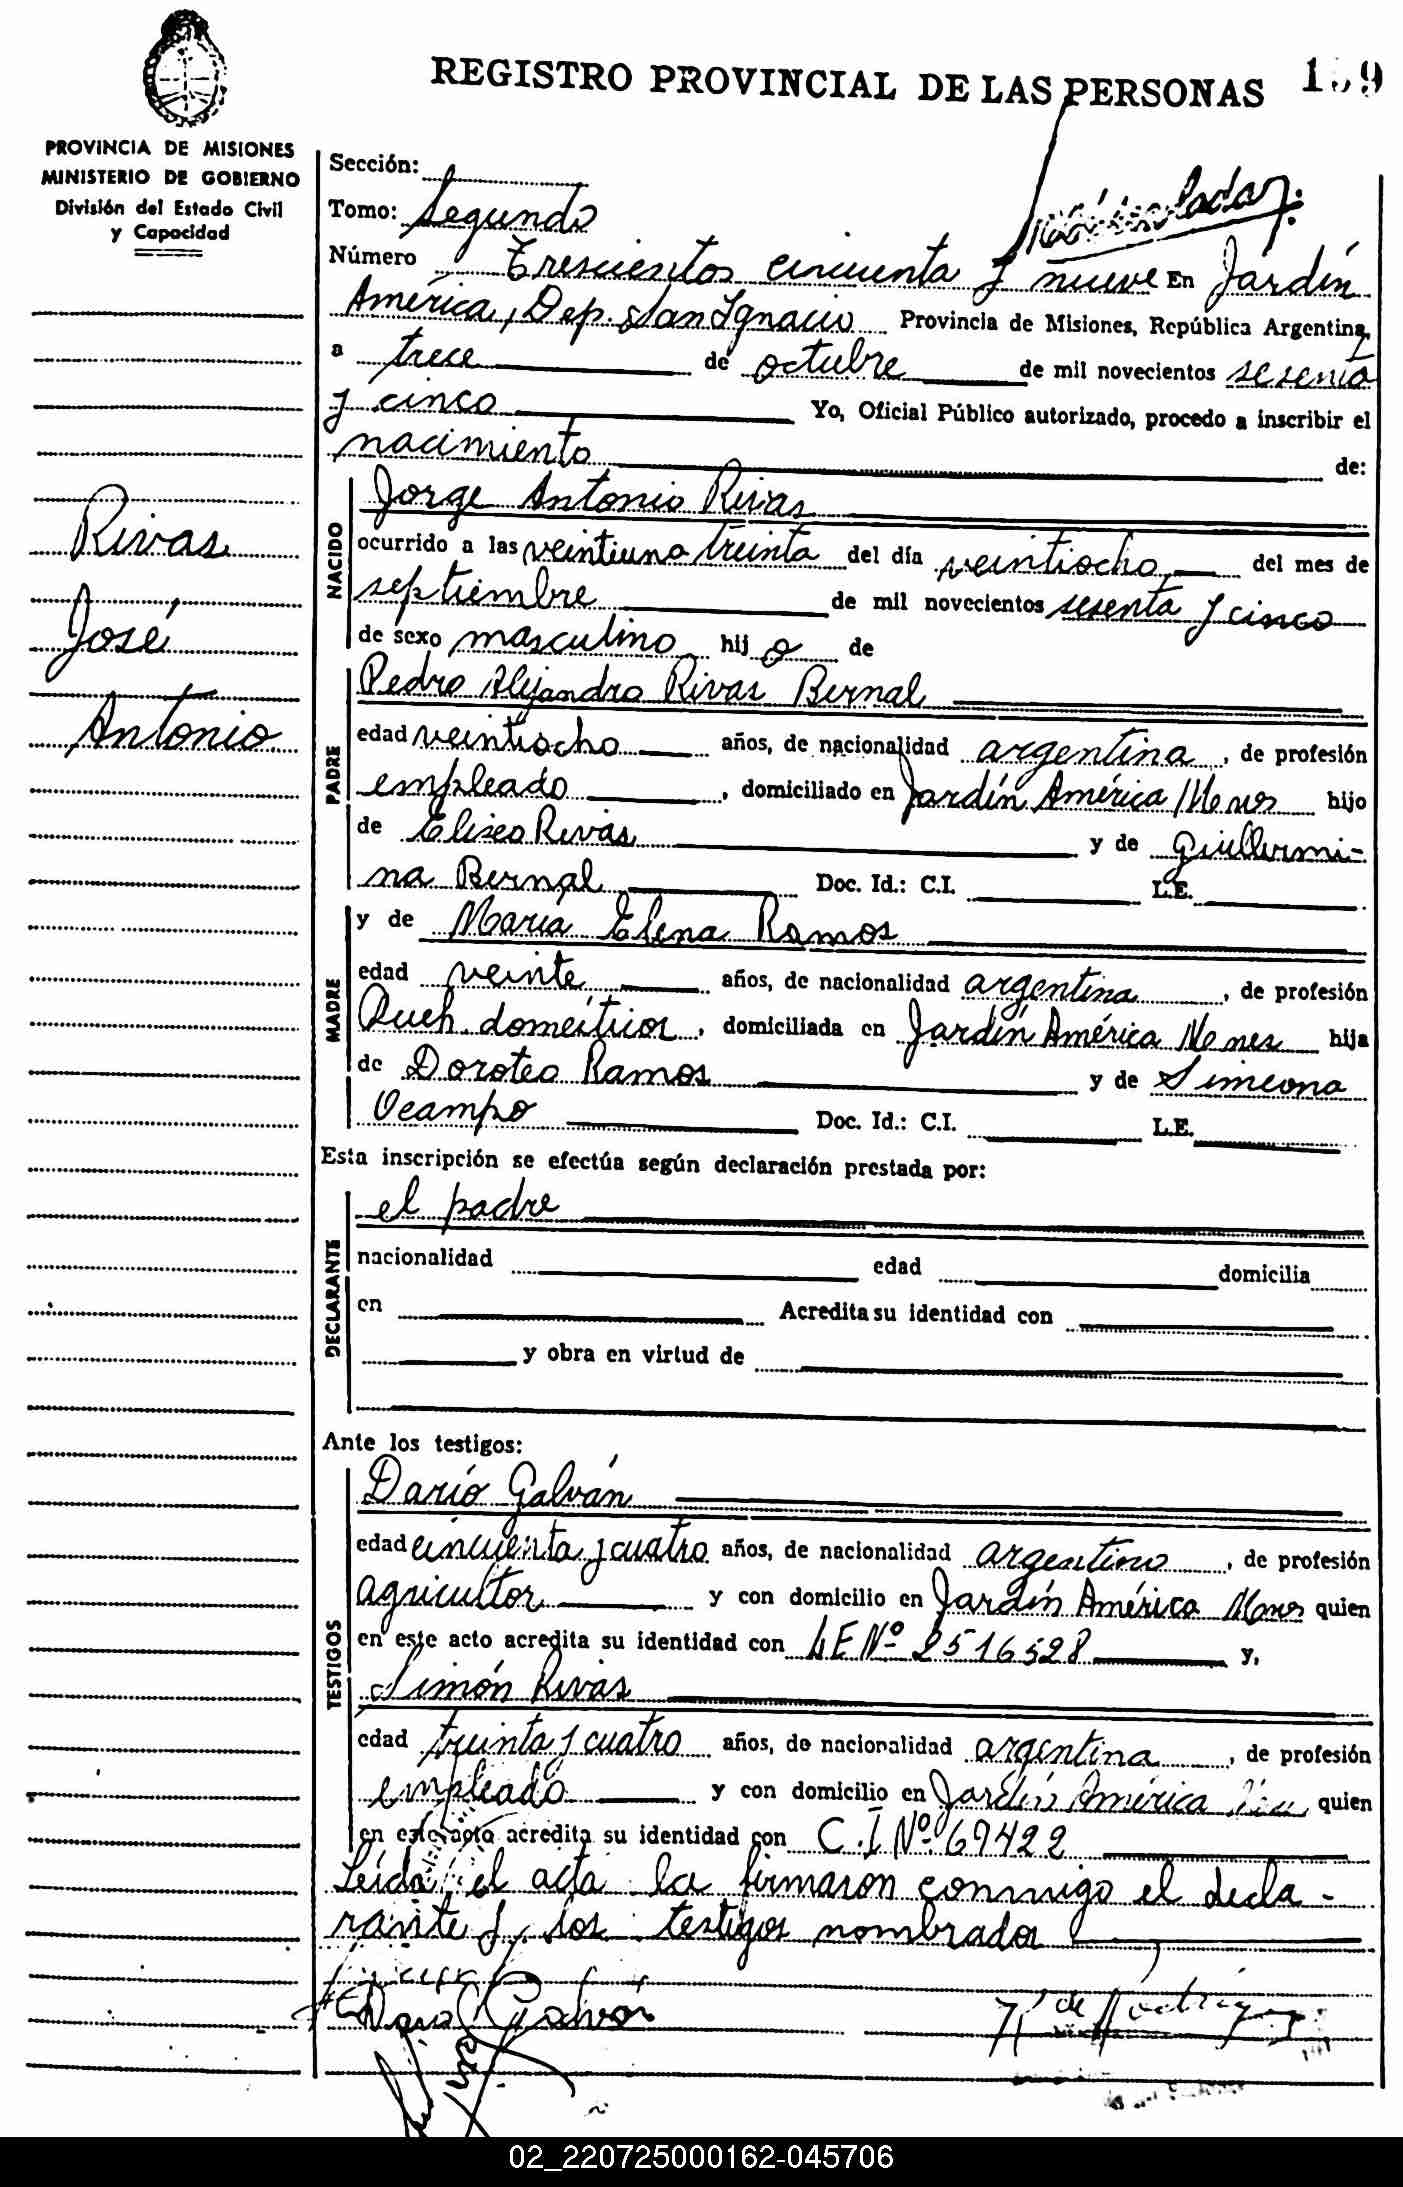 REGISTRO PROVINCIAL DE LAS PERSONAS
PROVINCIA DE MISIONES
MINISTERIO DE GOBIERNO
División del Estado Civil
y Capacidad
Rivas
José
Antonio
Sección:
Tomo: Segundo
Número Trescientos cincuenta y nueve En Jardín
América, Dep. San Ignacio Provincia de Misiones, República Argentina,
a trece de octubre de mil novecientos sesenta
y cinco Yo, Oficial Público autorizado, procedo a inscribir el
nacimiento de:
NACIDO
Jorge Antonio Rivas
ocurrido a las veintiuna treinta del día veintiocho del mes de
septiembre de mil novecientos sesenta y cinco
de sexo masculino hijo de
PADRE
Pedro Alejandro Rivas Bernal
edad veintiocho años, de nacionalidad argentina, de profesión
empleado, domiciliado en Jardín América Mnes hijo
de Eliseo Rivas y de Guillermi-
na Bernal Doc. Id.: C.I. L.E.
MADRE
y de María Elena Ramos
edad veinte años, de nacionalidad argentina, de profesión
Queh. domésticos, domiciliada en Jardín América Mnes hija
de Doroteo Ramos y de Simeona
Ocampo Doc. Id.: C.I. L.E.
Esta inscripción se efectúa según declaración prestada por:
DECLARANTE
el padre
nacionalidad edad domicilia
en Acredita su identidad con
y obra en virtud de
Ante los testigos:
TESTIGOS
Darío Galván
edad cincuenta y cuatro años, de nacionalidad argentino, de profesión
agricultor y con domicilio en Jardín América Mnes quien
en este acto acredita su identidad con LE Nº 2516528 y,
Simón Rivas
edad treinta y cuatro años, de nacionalidad argentina, de profesión
empleado y con domicilio en Jardín América quien
en este acto acredita su identidad con C.I Nº 69422
Leída el acta la firmaron conmigo el decla-
rante y los testigos nombrados
Darío Galván
02_220725000162-045706